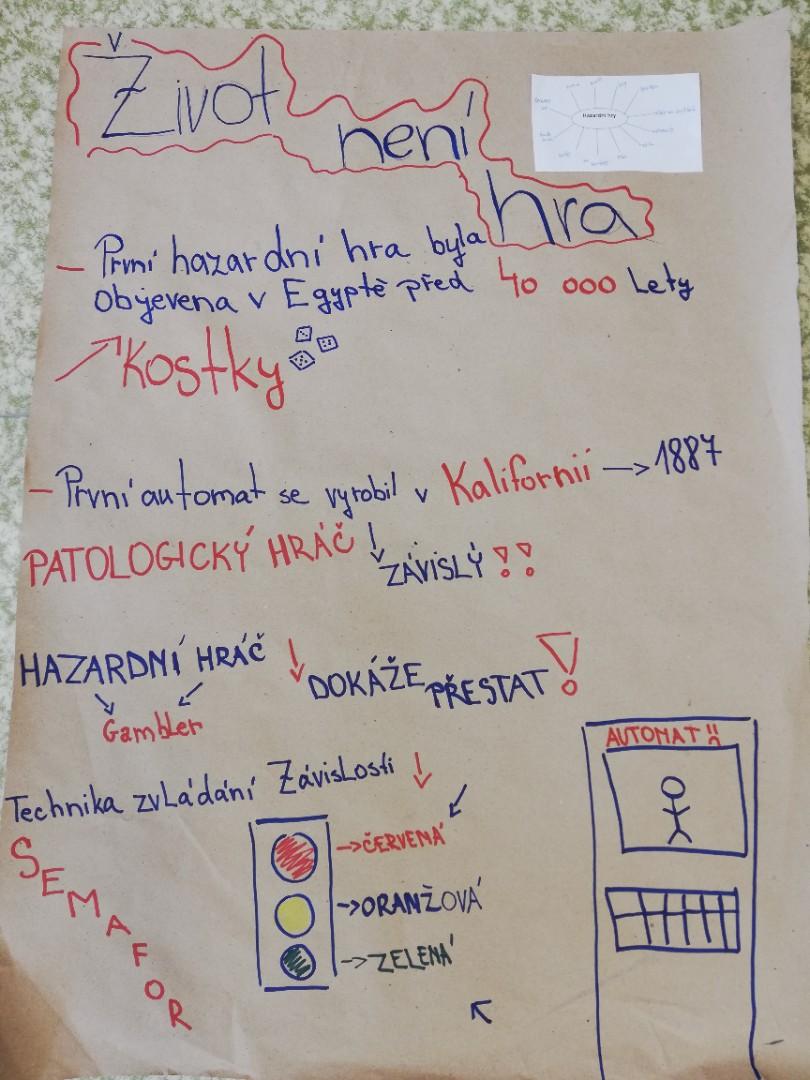 Život
není
hra
Hazardní hry
- První hazardní hra byla
objevena v Egyptě před 40 000 Lety
Kostky
- První automat se vyrobil v Kalifornii -> 1887
PATOLOGICKÝ HRÁČ
ZÁVISLÝ !!
HAZARDNÍ HRÁČ
DOKÁŽE PŘESTAT !
Gambler
AUTOMAT !!
Technika zvLádání ZávisLosti
SEMAFOR
-> ČERVENÁ
-> ORANŽOVÁ
-> ZELENÁ